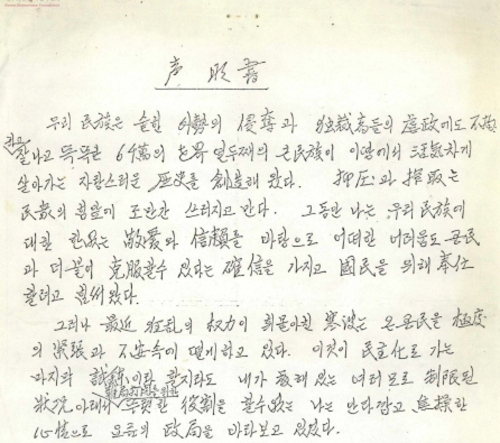 声明書
우리 民族은 숱한 外勢의 侵奪과 独裁者들의 虐政에도 不拘
하고 잘나고 똑똑한 6千萬의 世界 열두째의 큰民族이 이땅에서 活氣차게
살아가는 자랑스러운 歴史를 創造해 왔다. 抑圧과 搾取는
民衆의 힘앞에 조만간 쓰러지고 만다. 그동안 나는 우리 民族에
대한 한없는 敬愛와 信頼를 바탕으로 어떠한 어려움도 国民
과 더불어 克服할수 있다는 確信을 가지고 國民을 위해 奉仕
할려고 힘써왔다.
그러나 最近 狂乱의 权力이 휘몰아친 寒波는 온国民을 極度
의 緊張과 不安속에 떨게하고 있다. 이것이 民主化로 가는
마지막 試錬이라 할지라도 내가 処해 있는 여러모로 制限된
狀況 아래서 뚜렷한 役割을 할수없는 나는 안타깝고 焦燥한
心情으로 오늘의 政局을 바라보고 있었다.